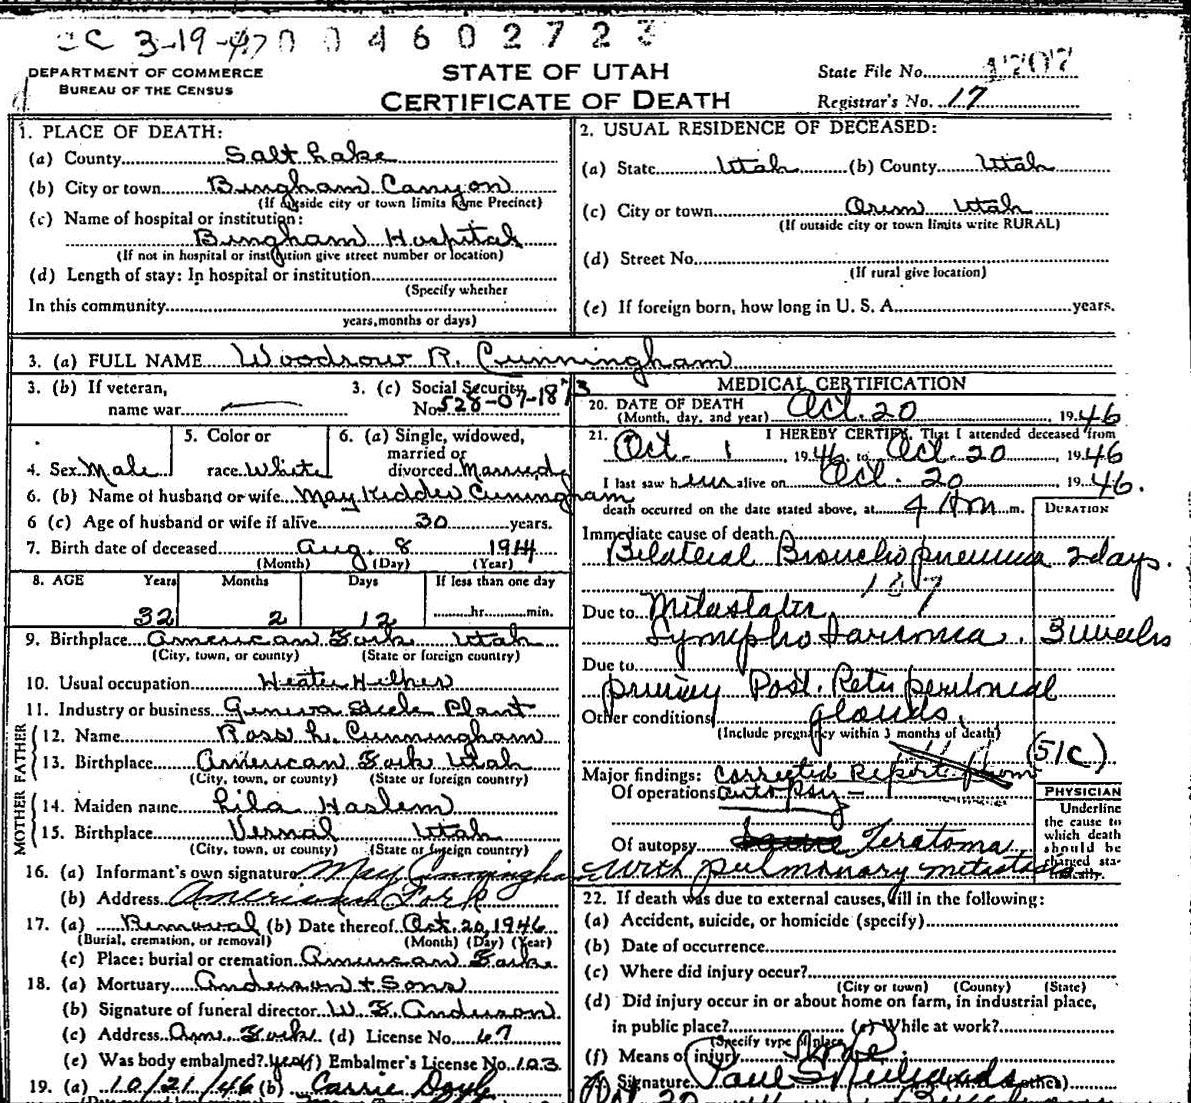 CC 3-19-47 0 0 4 6 0 2 7 2 3
DEPARTMENT OF COMMERCE
BUREAU OF THE CENSUS
STATE OF UTAH
CERTIFICATE OF DEATH
State File No. 1707
Registrar's No. 17
1. PLACE OF DEATH:
(a) County Salt Lake
(b) City or town Bingham Canyon
(If outside city or town limits name Precinct)
(c) Name of hospital or institution:
Bingham Hospital
(If not in hospital or institution give street number or location)
(d) Length of stay: In hospital or institution
(Specify whether
In this community
years, months or days)
2. USUAL RESIDENCE OF DECEASED:
(a) State Utah (b) County Utah
(c) City or town Orem Utah
(If outside city or town limits write RURAL)
(d) Street No.
(If rural give location)
(e) If foreign born, how long in U. S. A. years.
3. (a) FULL NAME Woodrow R. Cunningham
3. (b) If veteran,
name war
3. (c) Social Security
No. 528-07-1873
4. Sex Male
5. Color or
race White
6. (a) Single, widowed,
married or
divorced Married
6. (b) Name of husband or wife May Kidder Cunningham
6 (c) Age of husband or wife if alive 30 years.
7. Birth date of deceased Aug. 8 1914
(Month) (Day) (Year)
8. AGE Years Months Days If less than one day
32 2 12 hr. min.
9. Birthplace American Fork Utah
(City, town, or county) (State or foreign country)
10. Usual occupation Heater Helper
11. Industry or business Geneva Steele Plant
FATHER
12. Name Ross L. Cunningham
13. Birthplace American Fork Utah
(City, town, or county) (State or foreign country)
MOTHER
14. Maiden name Lila Haslem
15. Birthplace Vernal Utah
(City, town, or county) (State or foreign country)
16. (a) Informant's own signature May Cunningham
(b) Address American Fork
17. (a) Removal (b) Date thereof Oct. 20, 1946
(Burial, cremation, or removal) (Month) (Day) (Year)
(c) Place: burial or cremation American Fork
18. (a) Mortuary Anderson & Sons
(b) Signature of funeral director W. F. Anderson
(c) Address Am. Fork (d) License No. 67
(e) Was body embalmed? yes (f) Embalmer's License No. 103
19. (a) 10/21/46 (b) Carrie Doyle
MEDICAL CERTIFICATION
20. DATE OF DEATH
(Month, day, and year) Oct. 20, 1946
21. I HEREBY CERTIFY, That I attended deceased from
Oct. 1, 1946, to Oct. 20 1946
I last saw him alive on Oct. 20 1946.
death occurred on the date stated above, at 4 AM m. DURATION
Immediate cause of death
Bilateral Bronchopneumonia 2 days.
Due to Metastatic
Lymphosarcoma. 3 weeks
Due to
primary Post. Retroperitoneal
Other conditions glands,
(Include pregnancy within 3 months of death)
(51C)
Major findings: Corrected Report from
Of operations autopsy -
Of autopsy Teratoma
with pulmonary metastasis
PHYSICIAN
Underline
the cause to
which death
should be
charged sta-
tistically.
22. If death was due to external causes, fill in the following:
(a) Accident, suicide, or homicide (specify)
(b) Date of occurrence
(c) Where did injury occur?
(City or town) (County) (State)
(d) Did injury occur in or about home on farm, in industrial place,
in public place? (e) While at work?
(Specify type of place)
(f) Means of injury
Signature Paul S. Richards